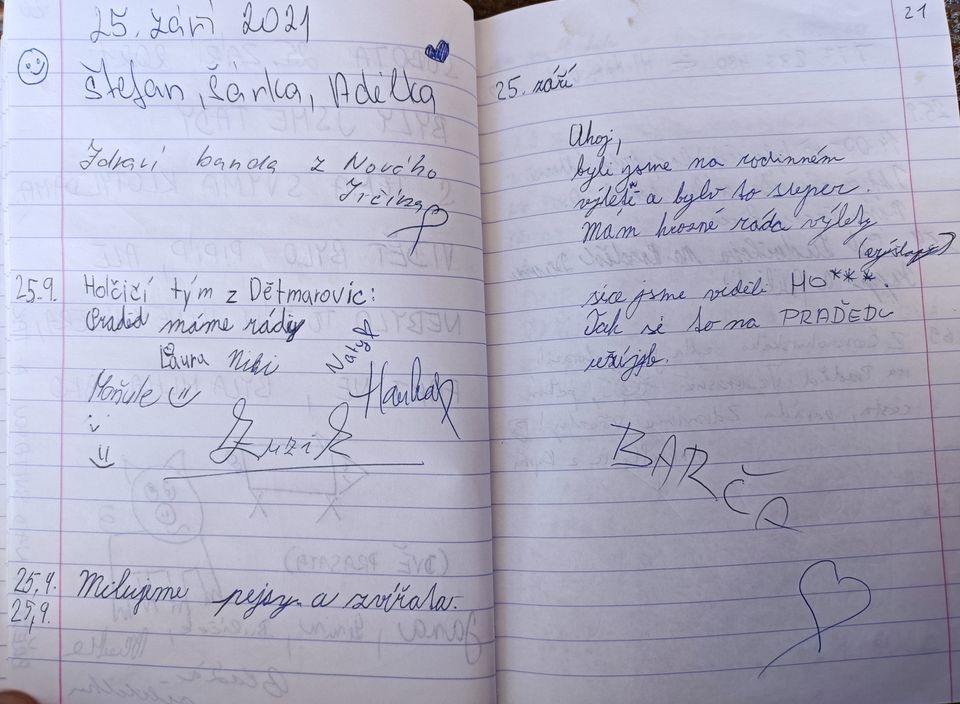 25. září 2021
Štefan, Šárka, Adélka
Zdraví banda z Nového
Jičína
25.9. Holčičí tým z Dětmarovic:
Praděd máme rády
Laura Niki
Naty
Hanka
Moňule
Zuzik
25.9. Milujeme pejsy a zvířata.
25.9.
21
25. září
Ahoj,
byli jsme na rodinném
výletě a bylo to super.
Mám hrozně ráda výlety
sice jsme viděli HO***.
Tak se to na PRADĚDU
BARČA